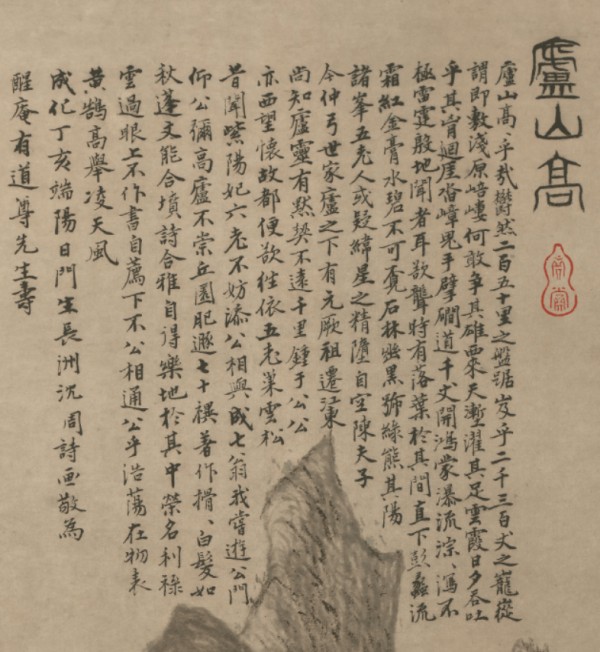 廬山高
廬山高、乎哉鬱然二百五十里之盤踞岌乎二千三百丈之巃嵷
謂即敷淺原培嶁何敢爭其雄西來天塹濯其足雲霞日夕吞吐
乎其胷迴崖沓嶂鬼手擘磵道千丈開鴻蒙瀑流淙、瀉不
極雷霆殷地聞者耳欲聾時有落葉於其間直下彭蠡流
霜紅金膏水碧不可覔石林幽黑號綠熊其陽
諸峯五老人或疑緯星之精墮自空陳夫子
今仲弓世家廬之下有元厥祖遷江東
尚知廬靈有默契不遠千里鍾于公公
亦西望懷故都便欲徃依五老巢雲松
昔聞紫陽妃六老不妨添公相與成七翁我嘗遊公門
仰公彌高廬不崇丘園肥遯七十禩著作搰、白髮如
秋蓬文能合墳詩合雅自得樂地於其中榮名利祿
雲過眼上不作書自薦下不公相通公乎浩蕩在物表
黃鵠高舉凌天風
成化丁亥端陽日門生長洲沈周詩画敬為
醒庵有道尊先生壽